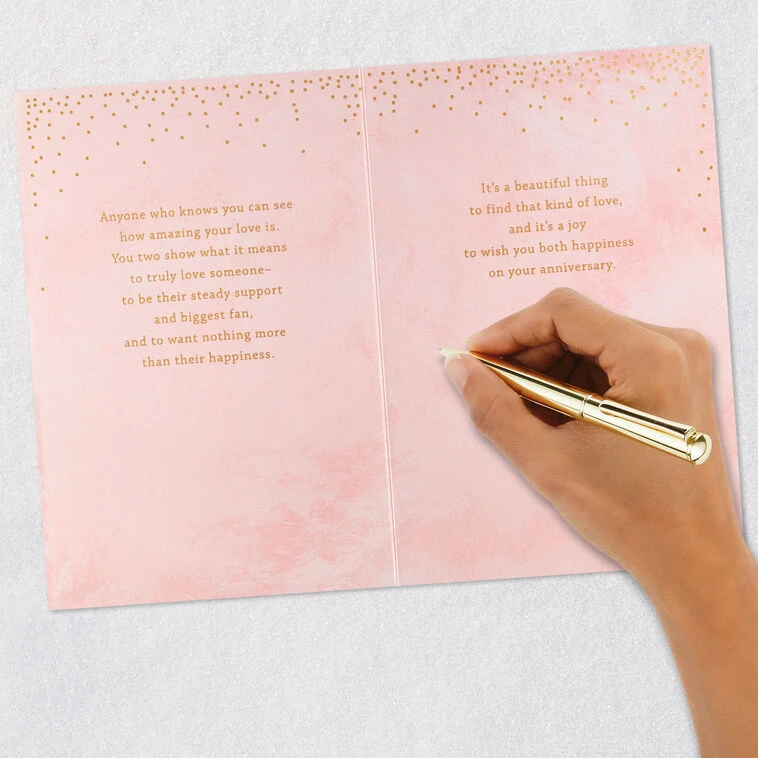 Anyone who knows you can see
how amazing your love is.
You two show what it means
to truly love someone–
to be their steady support
and biggest fan,
and to want nothing more
than their happiness.
It's a beautiful thing
to find that kind of love,
and it's a joy
to wish you both happiness
on your anniversary.